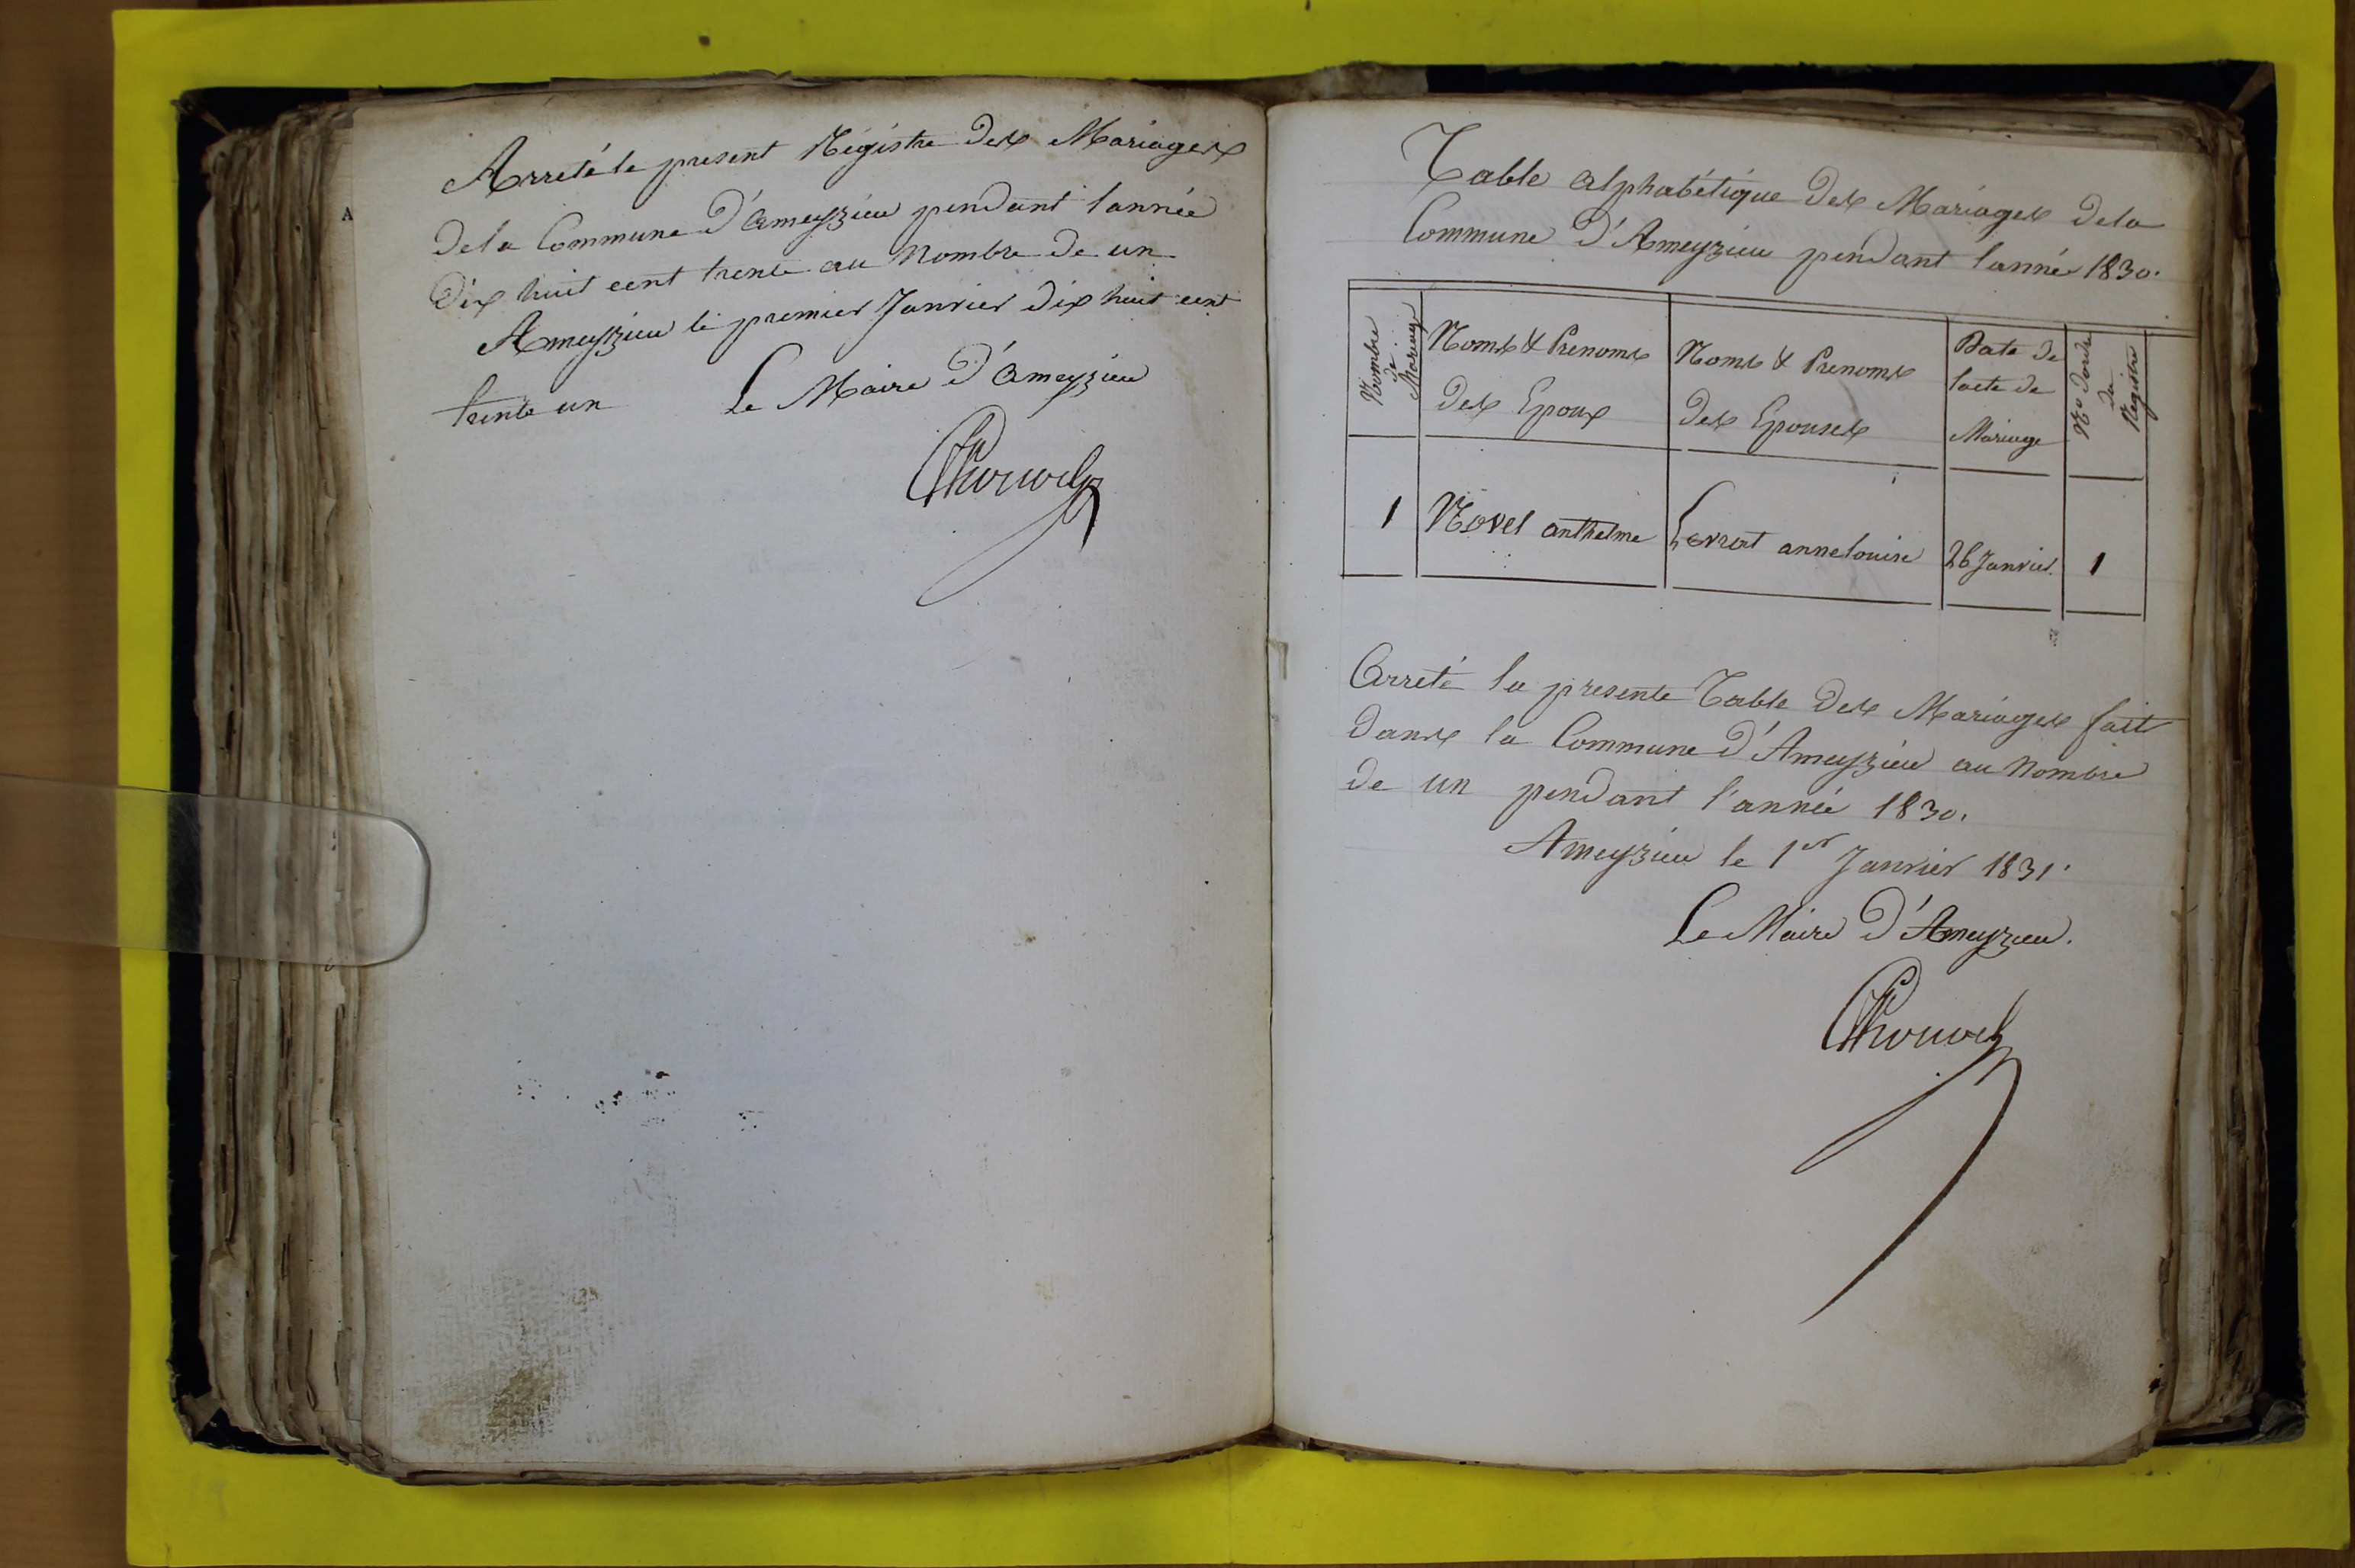 Arreté le present Régistre des Mariages
de la Commune d'ameyzieu pendant l'année
Dix huit cent trente au Nombre de un
Ameyzieu le premier Janvier dix huit cent
trente un Le Maire d'ameyzieu
A
Table alphabétique des Mariages de la
Commune d'Ameyzieu pendant l'année 1830.
Nombre de Mariage
Noms & Prenoms
des Epoux
Noms & Prenoms
des Epouses
Date de
l'acte de
Mariage
No. d'ordre du Registre
1 Novel anthelme Levrat anne louise 26 Janvier 1
Arreté la presente Table des Mariages fait
dans la Commune d'Ameyzieu au Nombre
de un pendant l'année 1830.
Ameyzieu le 1er Janvier 1831.
Le Maire d'Ameyzieu.